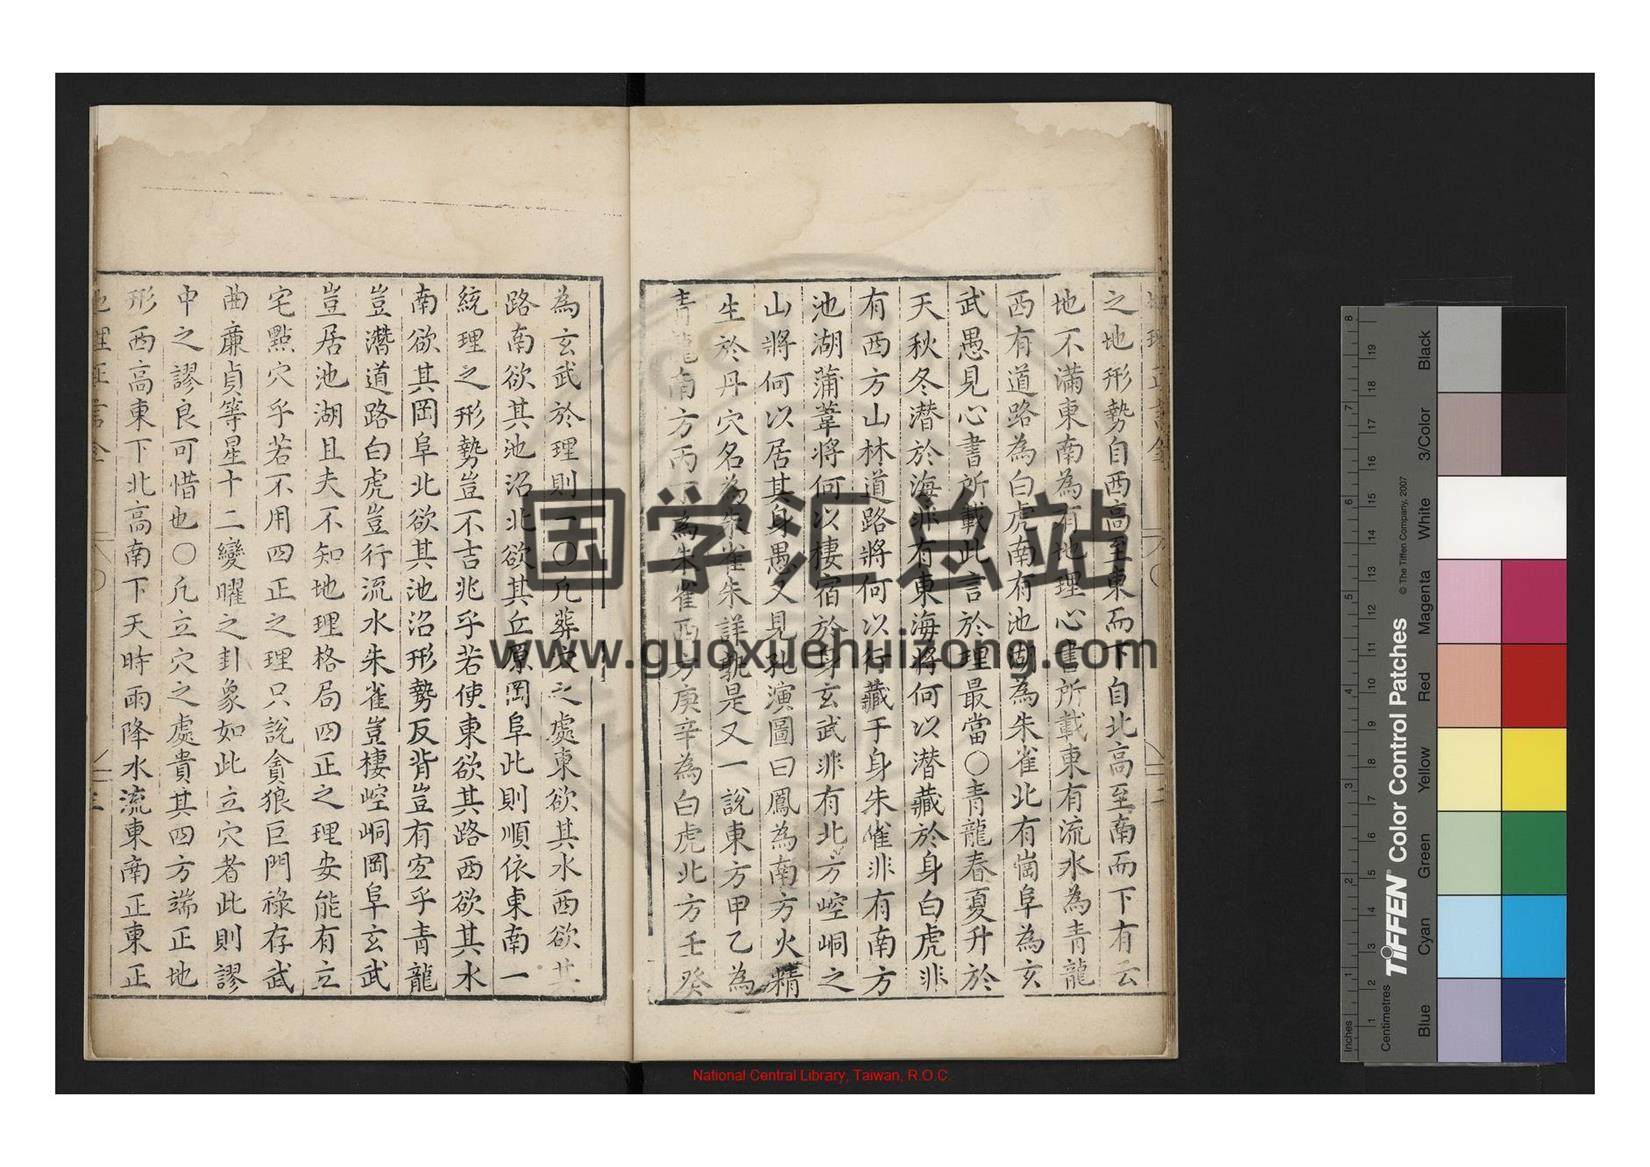 之地形勢自西高至東而下自北高至南而下有云
地不滿東南為有地理心書所載東有流水為青龍
西有道路為白虎南有池湖為朱雀北有崗阜為玄
武愚見心書所載此言於理最當〇青龍春夏升於
天秋冬潛於海非有東海將何以潛藏於身白虎非
有西方山林道路將何以行藏于身朱雀非有南方
池湖蒲葦將何以棲宿於身玄武非有北方崆峒之
山將何以居其身愚又見孔演圖曰鳳為南方火精
生於丹穴名為朱雀朱詳孰是又一說東方甲乙為
青龍南方丙丁為朱雀西方庚辛為白虎北方壬癸
為玄武於理則 〇凡葬穴之處東欲其水西欲其
路南欲其池沼北欲其丘原岡阜此則順依東南一
統理之形勢豈不吉兆乎若使東欲其路西欲其水
南欲其岡阜北欲其池沼形勢反背豈有宓乎青龍
豈潛道路白虎豈行流水朱雀豈棲崆峒岡阜玄武
豈居池湖且夫不知地理格局四正之理安能有立
宅點穴乎若不用四正之理只說貪狼巨門祿存武
曲廉貞等星十二變曜之卦象如此立穴者此則謬
中之謬良可惜也〇凡立穴之處貴其四方端正地
形西高東下北高南下天時雨降水流東南正東正
国学汇总站
www.guoxuehuizong.com
National Central Library, Taiwan, R.O.C.
Inches
Centimetres
TIFFEN Color Control Patches
© The Tiffen Company, 2007
Blue
Cyan
Green
Yellow
Red
Magenta
White
3/Color
Black